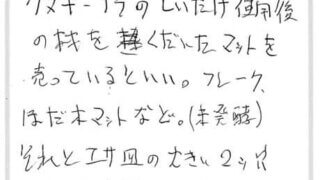 クヌギ・コナラのしいたけ使用後
の材を くだいたマットを
売っているといい。フレーク、
ほだ木マットなど。(未発酵)
それとエサ皿の大きい2ツ!!